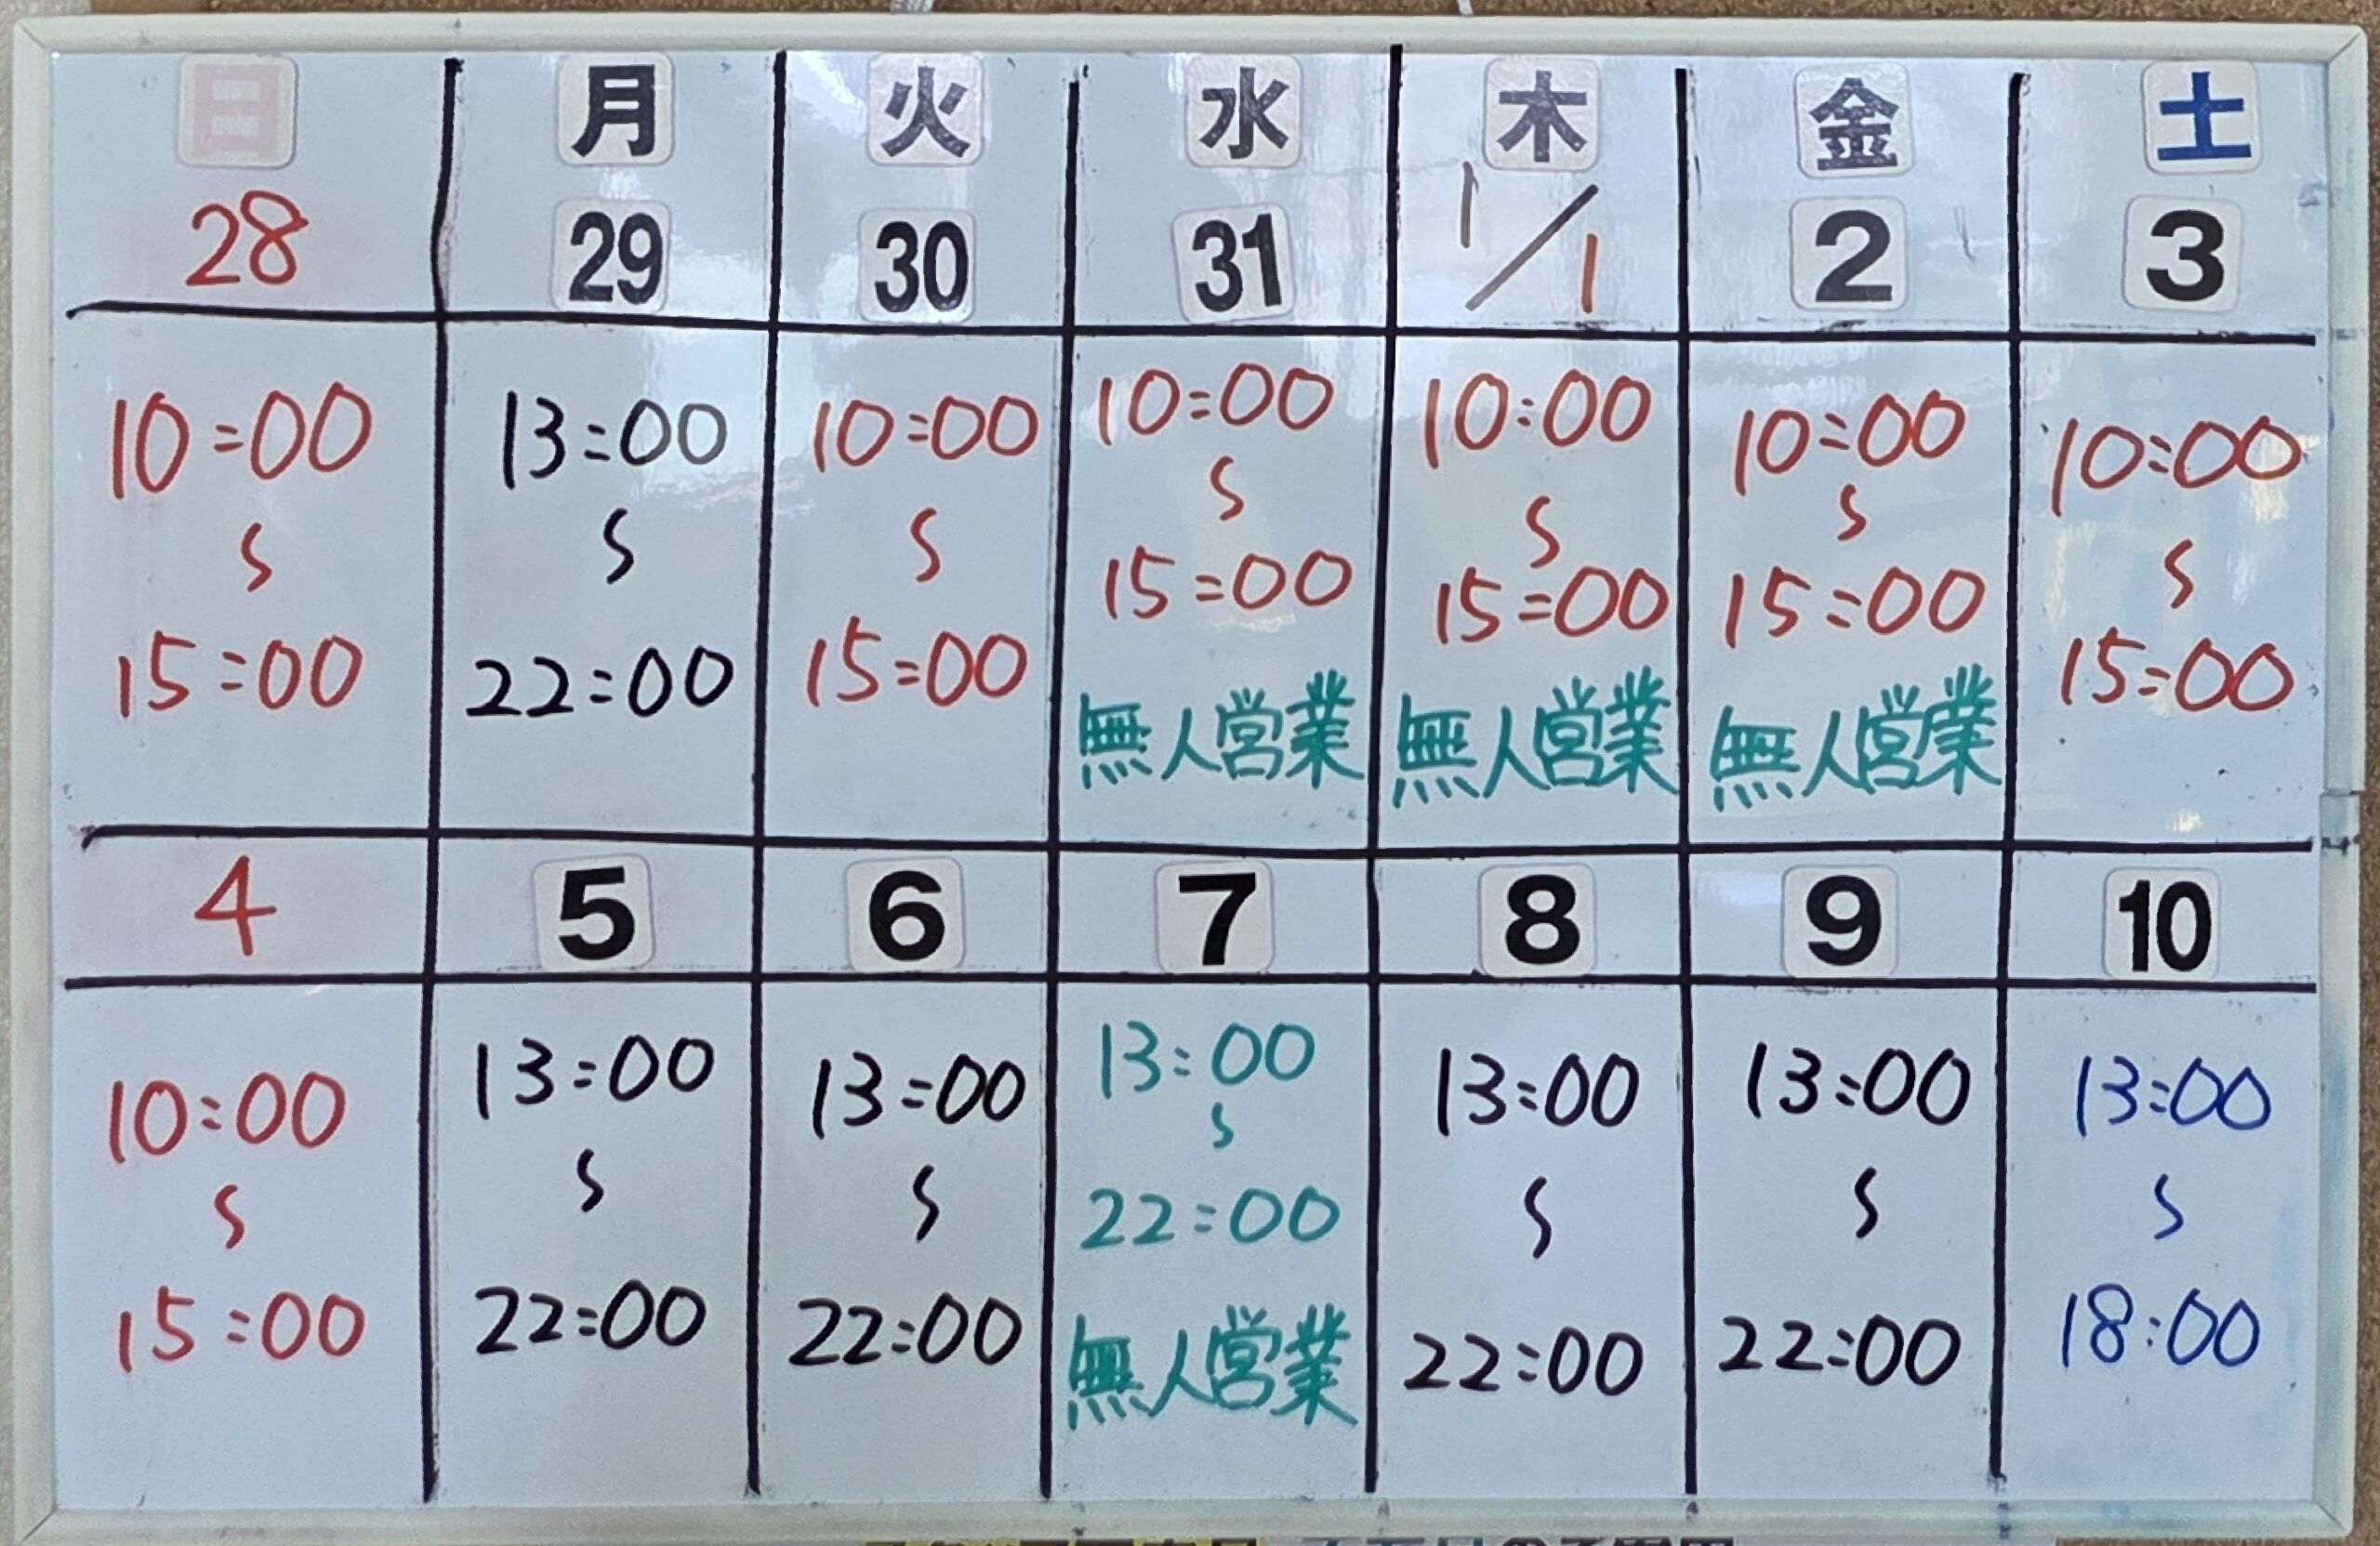 日 月 火 水 木 金 土
28 29 30 31 1/1 2 3
10:00 13:00 10:00 10:00 10:00 10:00 10:00
〜 〜 〜 〜 〜 〜 〜
15:00 22:00 15:00 15:00 15:00 15:00 15:00
無人営業 無人営業 無人営業
4 5 6 7 8 9 10
10:00 13:00 13:00 13:00 13:00 13:00 13:00
〜 〜 〜 〜 〜 〜 〜
15:00 22:00 22:00 22:00 22:00 22:00 18:00
無人営業